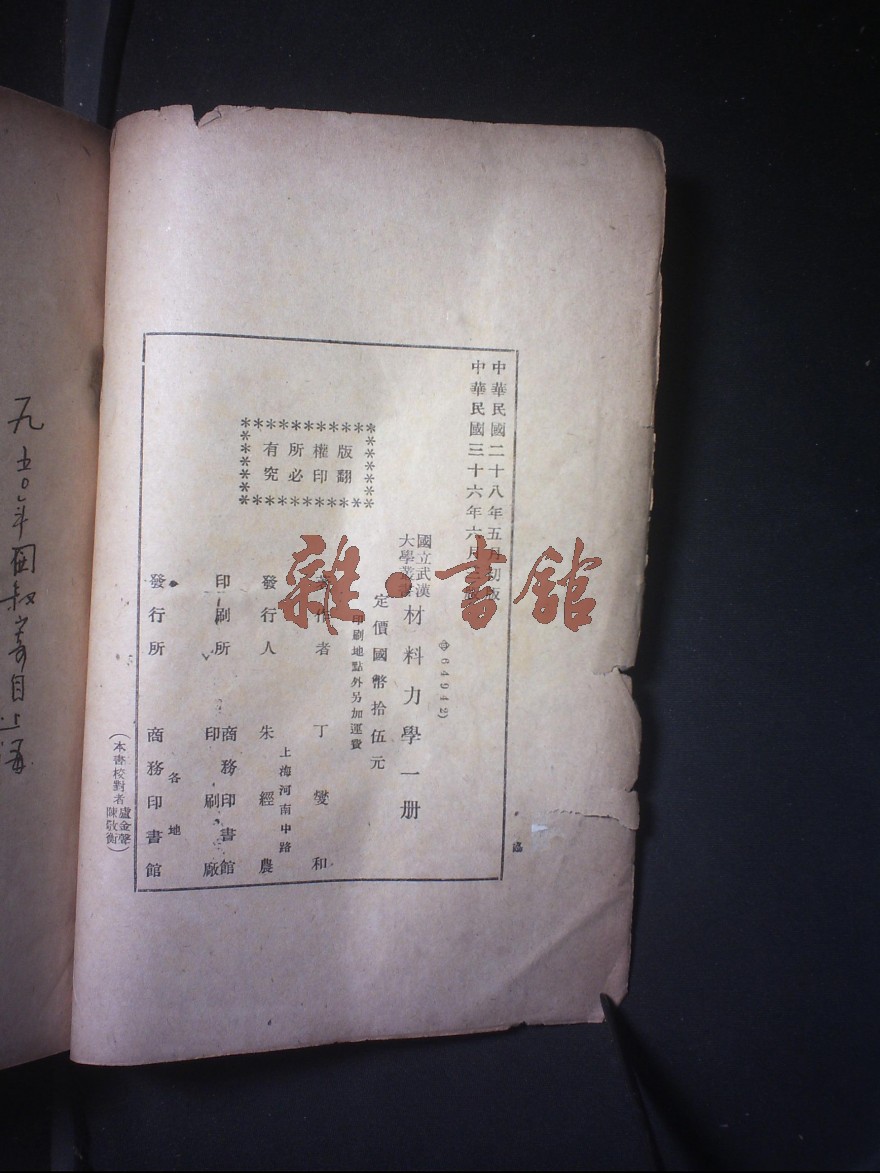 中華民國二十八年五月初版
中華民國三十六年六月
(㊥64942)
國立武漢大學叢書
材料力學一册
定價國幣拾伍元
印刷地點外另加運費
版權所有
翻印必究
著作者 丁燮和
發行人 朱經農
上海河南中路
印刷所 商務印書館印刷廠
發行所 商務印書館
各地
(本書校對者盧金聲陳敬衡)
雜·書館